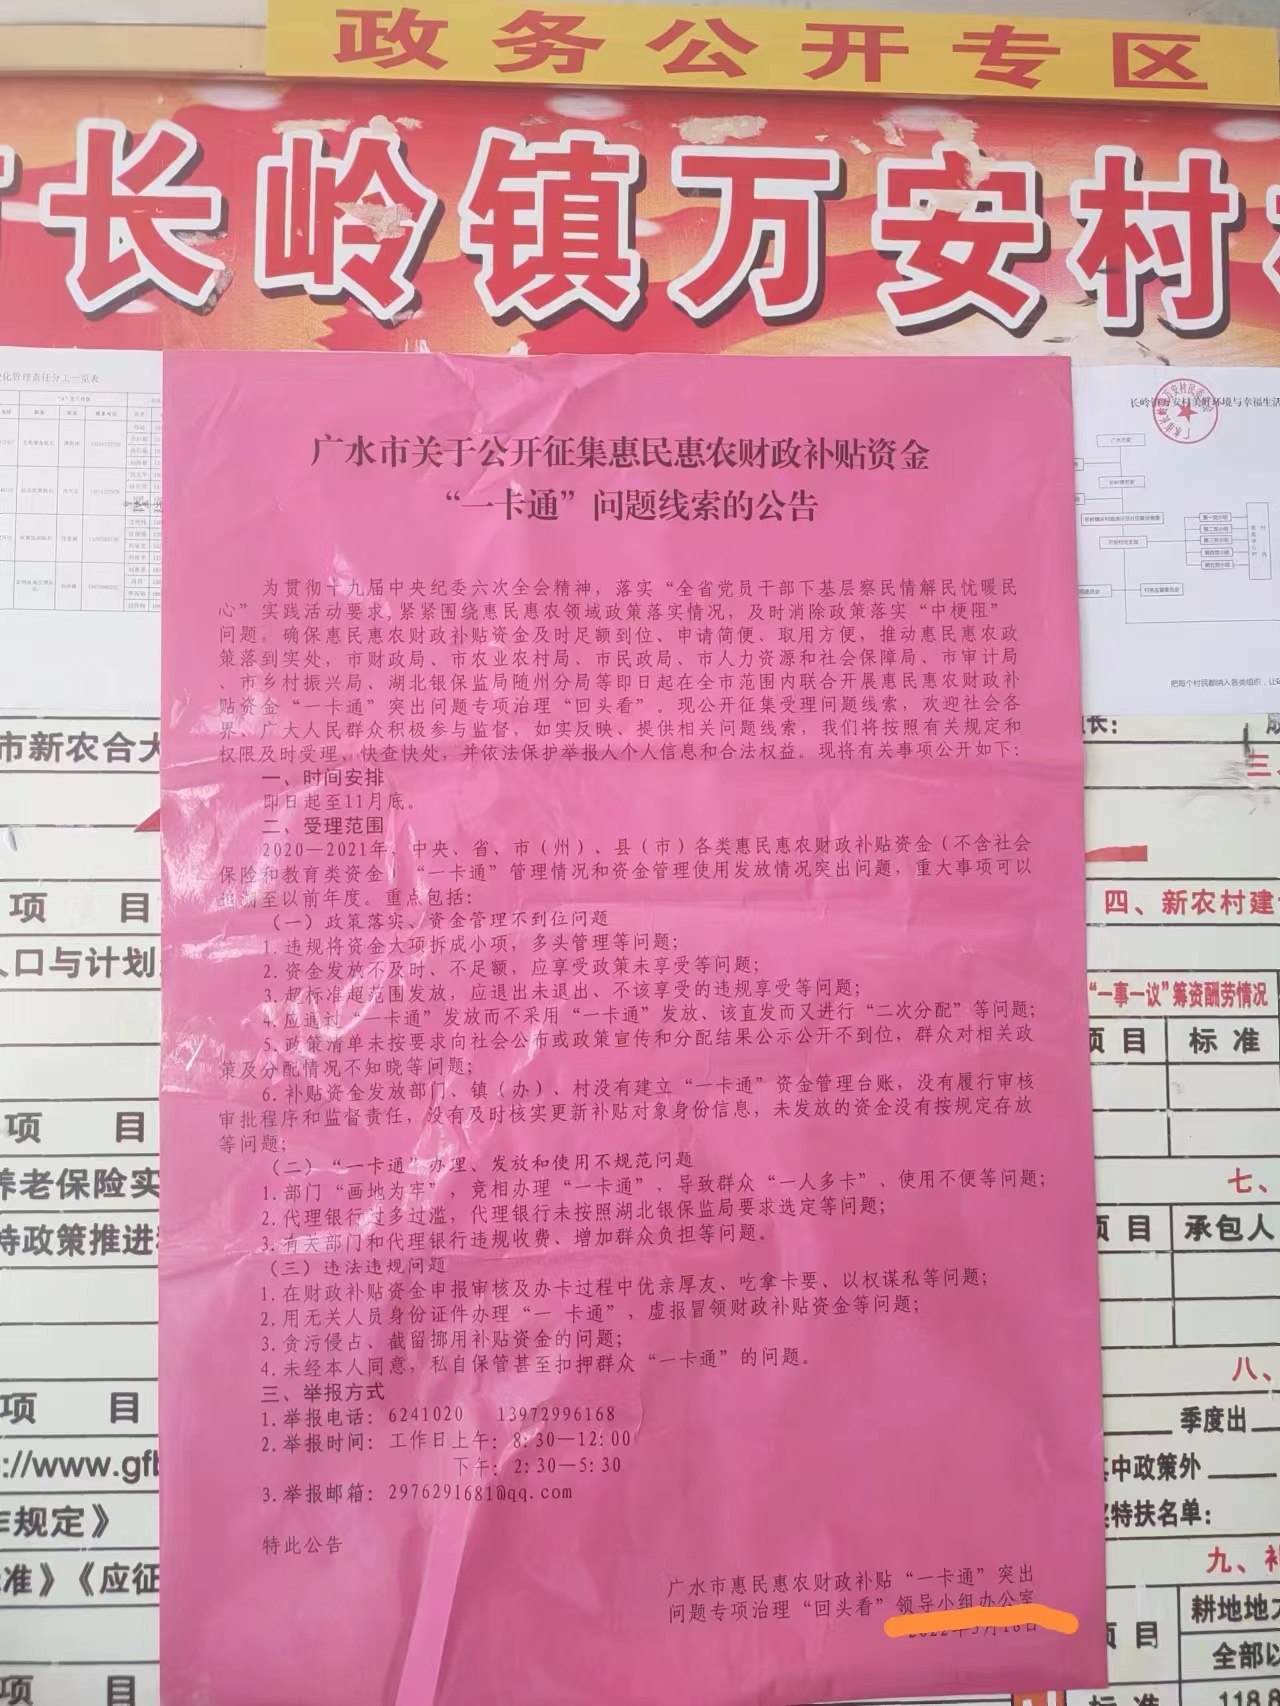 政务公开专区
长岭镇万安村
广水市关于公开征集惠民惠农财政补贴资金
“一卡通”问题线索的公告
为贯彻十九届中央纪委六次全会精神，落实“全省党员干部下基层察民情解民忧暖民
心”实践活动要求，紧紧围绕惠民惠农领域政策落实情况，及时消除政策落实“中梗阻”
问题。确保惠民惠农财政补贴资金及时足额到位、申请简便、取用方便，推动惠民惠农政
策落到实处，市财政局、市农业农村局、市民政局、市人力资源和社会保障局、市审计局
、市乡村振兴局、湖北银保监局随州分局等即日起在全市范围内联合开展惠民惠农财政补
贴资金“一卡通”突出问题专项治理“回头看”。现公开征集受理问题线索，欢迎社会各
界、广大人民群众积极参与监督，如实反映、提供相关问题线索，我们将按照有关规定和
权限及时受理、快查快处，并依法保护举报人个人信息和合法权益。现将有关事项公开如下：
一、时间安排
即日起至11月底。
二、受理范围
2020—2021年，中央、省、市（州）、县（市）各类惠民惠农财政补贴资金（不含社会
保险和教育类资金）“一卡通”管理情况和资金管理使用发放情况突出问题，重大事项可以
追溯至以前年度。重点包括：
（一）政策落实、资金管理不到位问题
1.违规将资金大项拆成小项，多头管理等问题；
2.资金发放不及时、不足额，应享受政策未享受等问题；
3.超标准超范围发放，应退出未退出、不该享受的违规享受等问题；
4.应通过“一卡通”发放而不采用“一卡通”发放、该直发而又进行“二次分配”等问题；
5.政策清单未按要求向社会公布或政策宣传和分配结果公示公开不到位，群众对相关政
策及分配情况不知晓等问题；
6.补贴资金发放部门、镇（办）、村没有建立“一卡通”资金管理台账，没有履行审核
审批程序和监督责任，没有及时核实更新补贴对象身份信息，未发放的资金没有按规定存放
等问题；
（二）“一卡通”办理、发放和使用不规范问题
1.部门“画地为牢”，竞相办理“一卡通”，导致群众“一人多卡”、使用不便等问题；
2.代理银行过多过滥，代理银行未按照湖北银保监局要求选定等问题；
3.有关部门和代理银行违规收费、增加群众负担等问题。
（三）违法违规问题
1.在财政补贴资金申报审核及办卡过程中优亲厚友、吃拿卡要、以权谋私等问题；
2.用无关人员身份证件办理“一 卡通”，虚报冒领财政补贴资金等问题；
3.贪污侵占、截留挪用补贴资金的问题；
4.未经本人同意，私自保管甚至扣押群众“一卡通”的问题。
三、举报方式
1.举报电话：6241020 13972996168
2.举报时间：工作日上午：8:30—12:00
下午：2:30—5:30
3.举报邮箱：2976291681@qq.com
特此公告
广水市惠民惠农财政补贴“一卡通”突出
问题专项治理“回头看”领导小组办公室
市新农合大
项 目
人口与计划
项 目
养老保险实
特政策推进
项 目
://www.gfb
作规定》
准》《应征
项 目
化管理责任分工一览表
长岭镇万安村美好环境与幸福生活
把每个村民都纳入各类组织，让
三、
四、新农村建
“一事一议”筹资酬劳情况
项目 标准
七、
项目 承包人
八、
季度出
其中政策外
奖特扶名单：
九、补
耕地地力
项目 全部以
标准 118.8